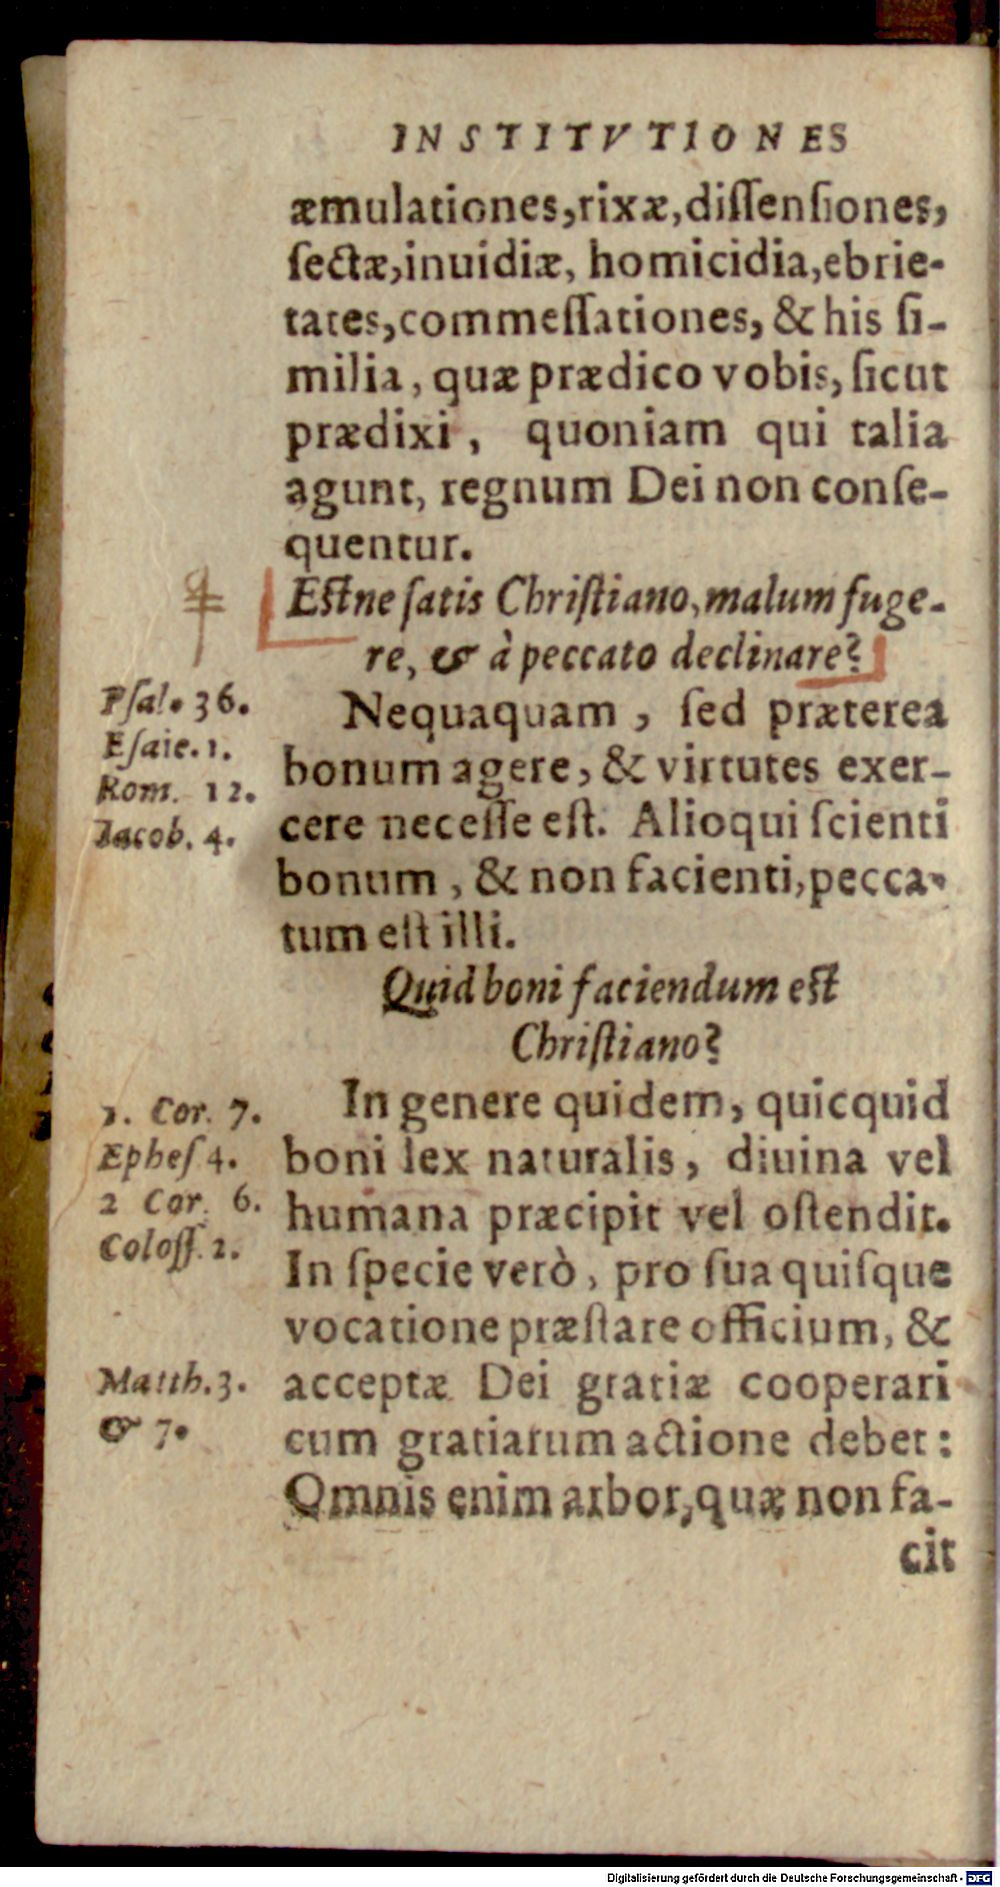 INSTITVTIONES
æmulationes, rixæ, dissensiones,
sectæ, inuidiæ, homicidia, ebrie-
tates, commessationes, & his si-
milia, quæ prædico vobis, sicut
prædixi, quoniam qui talia
agunt, regnum Dei non conse-
quentur.
Estne satis Christiano, malum fuge-
re, & à peccato declinare?
Psal. 36.
Esaie. 1.
Rom. 12.
Iacob. 4.
Nequaquam, sed præterea
bonum agere, & virtutes exer-
cere necesse est. Alioqui scienti
bonum, & non facienti, pecca-
tum est illi.
Quid boni faciendum est
Christiano?
1. Cor. 7.
Ephes 4.
2 Cor. 6.
Coloss. 2.
In genere quidem, quicquid
boni lex naturalis, diuina vel
humana præcipit vel ostendit.
In specie verò, pro sua quisque
vocatione præstare officium, &
Matth. 3.
& 7.
acceptæ Dei gratiæ cooperari
cum gratiarum actione debet:
Omnis enim arbor, quæ non fa-
cit
Digitalisierung gefördert durch die Deutsche Forschungsgemeinschaft - DFG